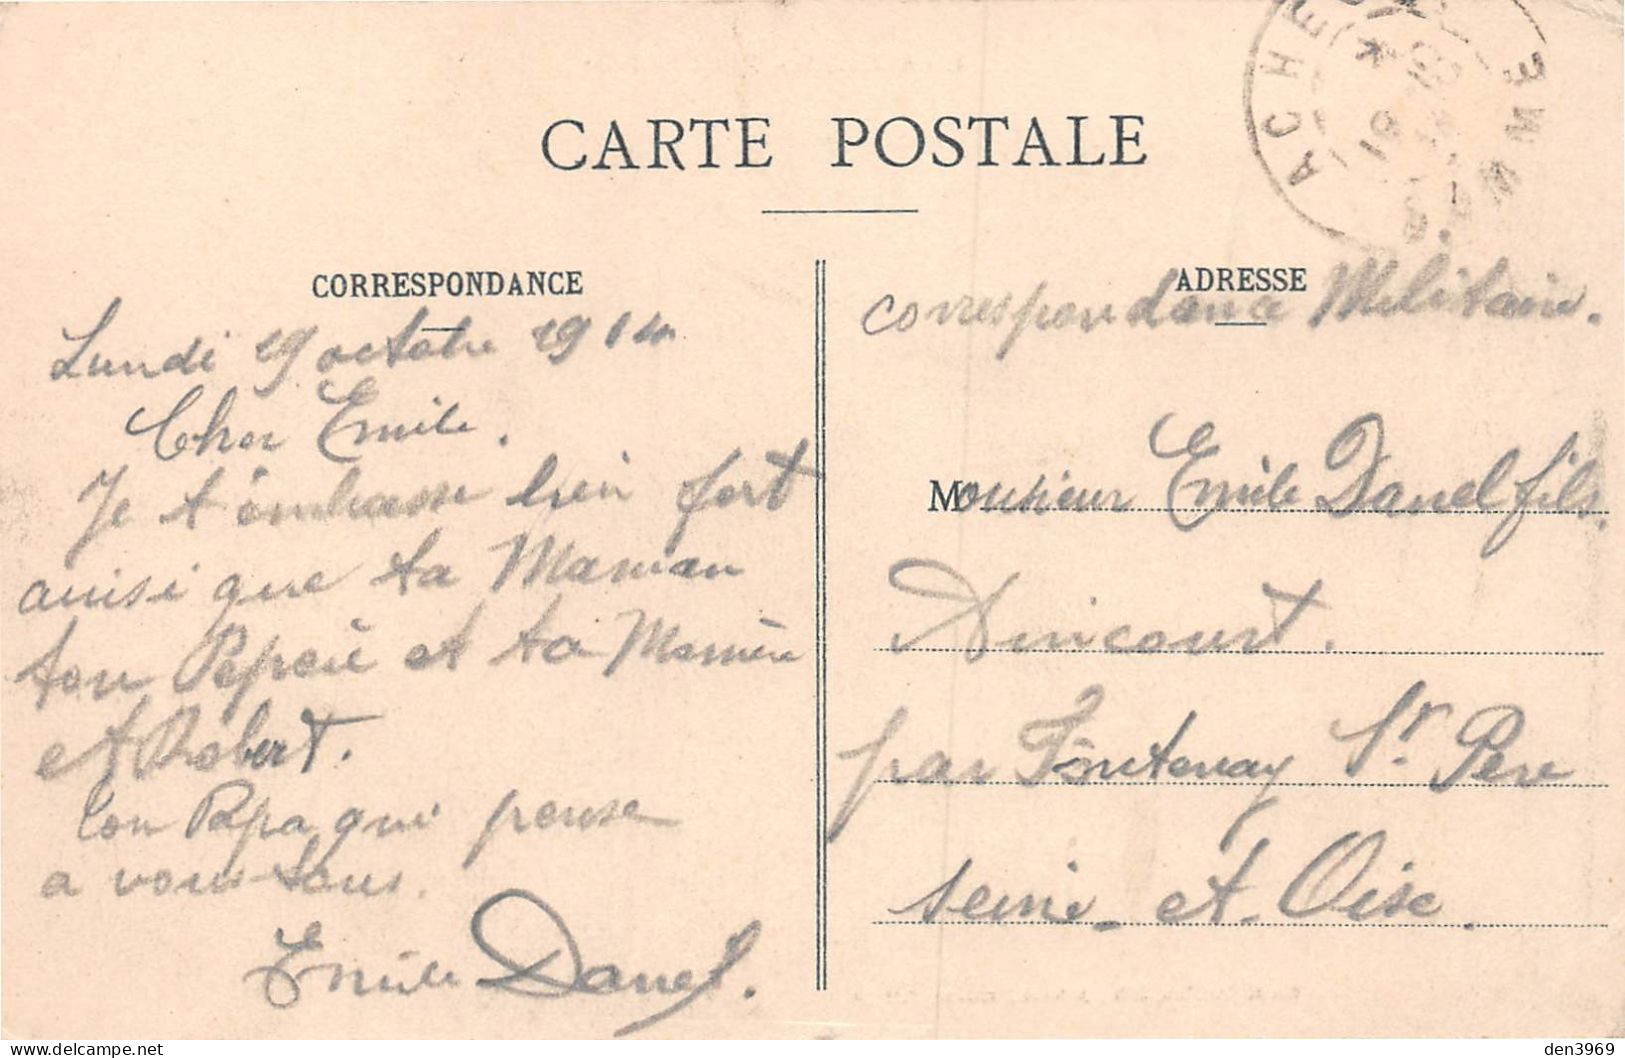 CARTE POSTALE
ACHEUX
SOMME
CORRESPONDANCE
Lundi 19 octobre 1914
Cher Emile.
Je t'embrasse bien fort
ainsi que ta Maman
ton Pépère et ta Mémère
et Robert.
Ton Papa qui pense
a vous tous.
Emile Danel.
ADRESSE
correspondance Militaire.
Monsieur Emile Danel fils.
Aincourt.
par Fontenay St. Père
Seine-et-Oise.
den3969